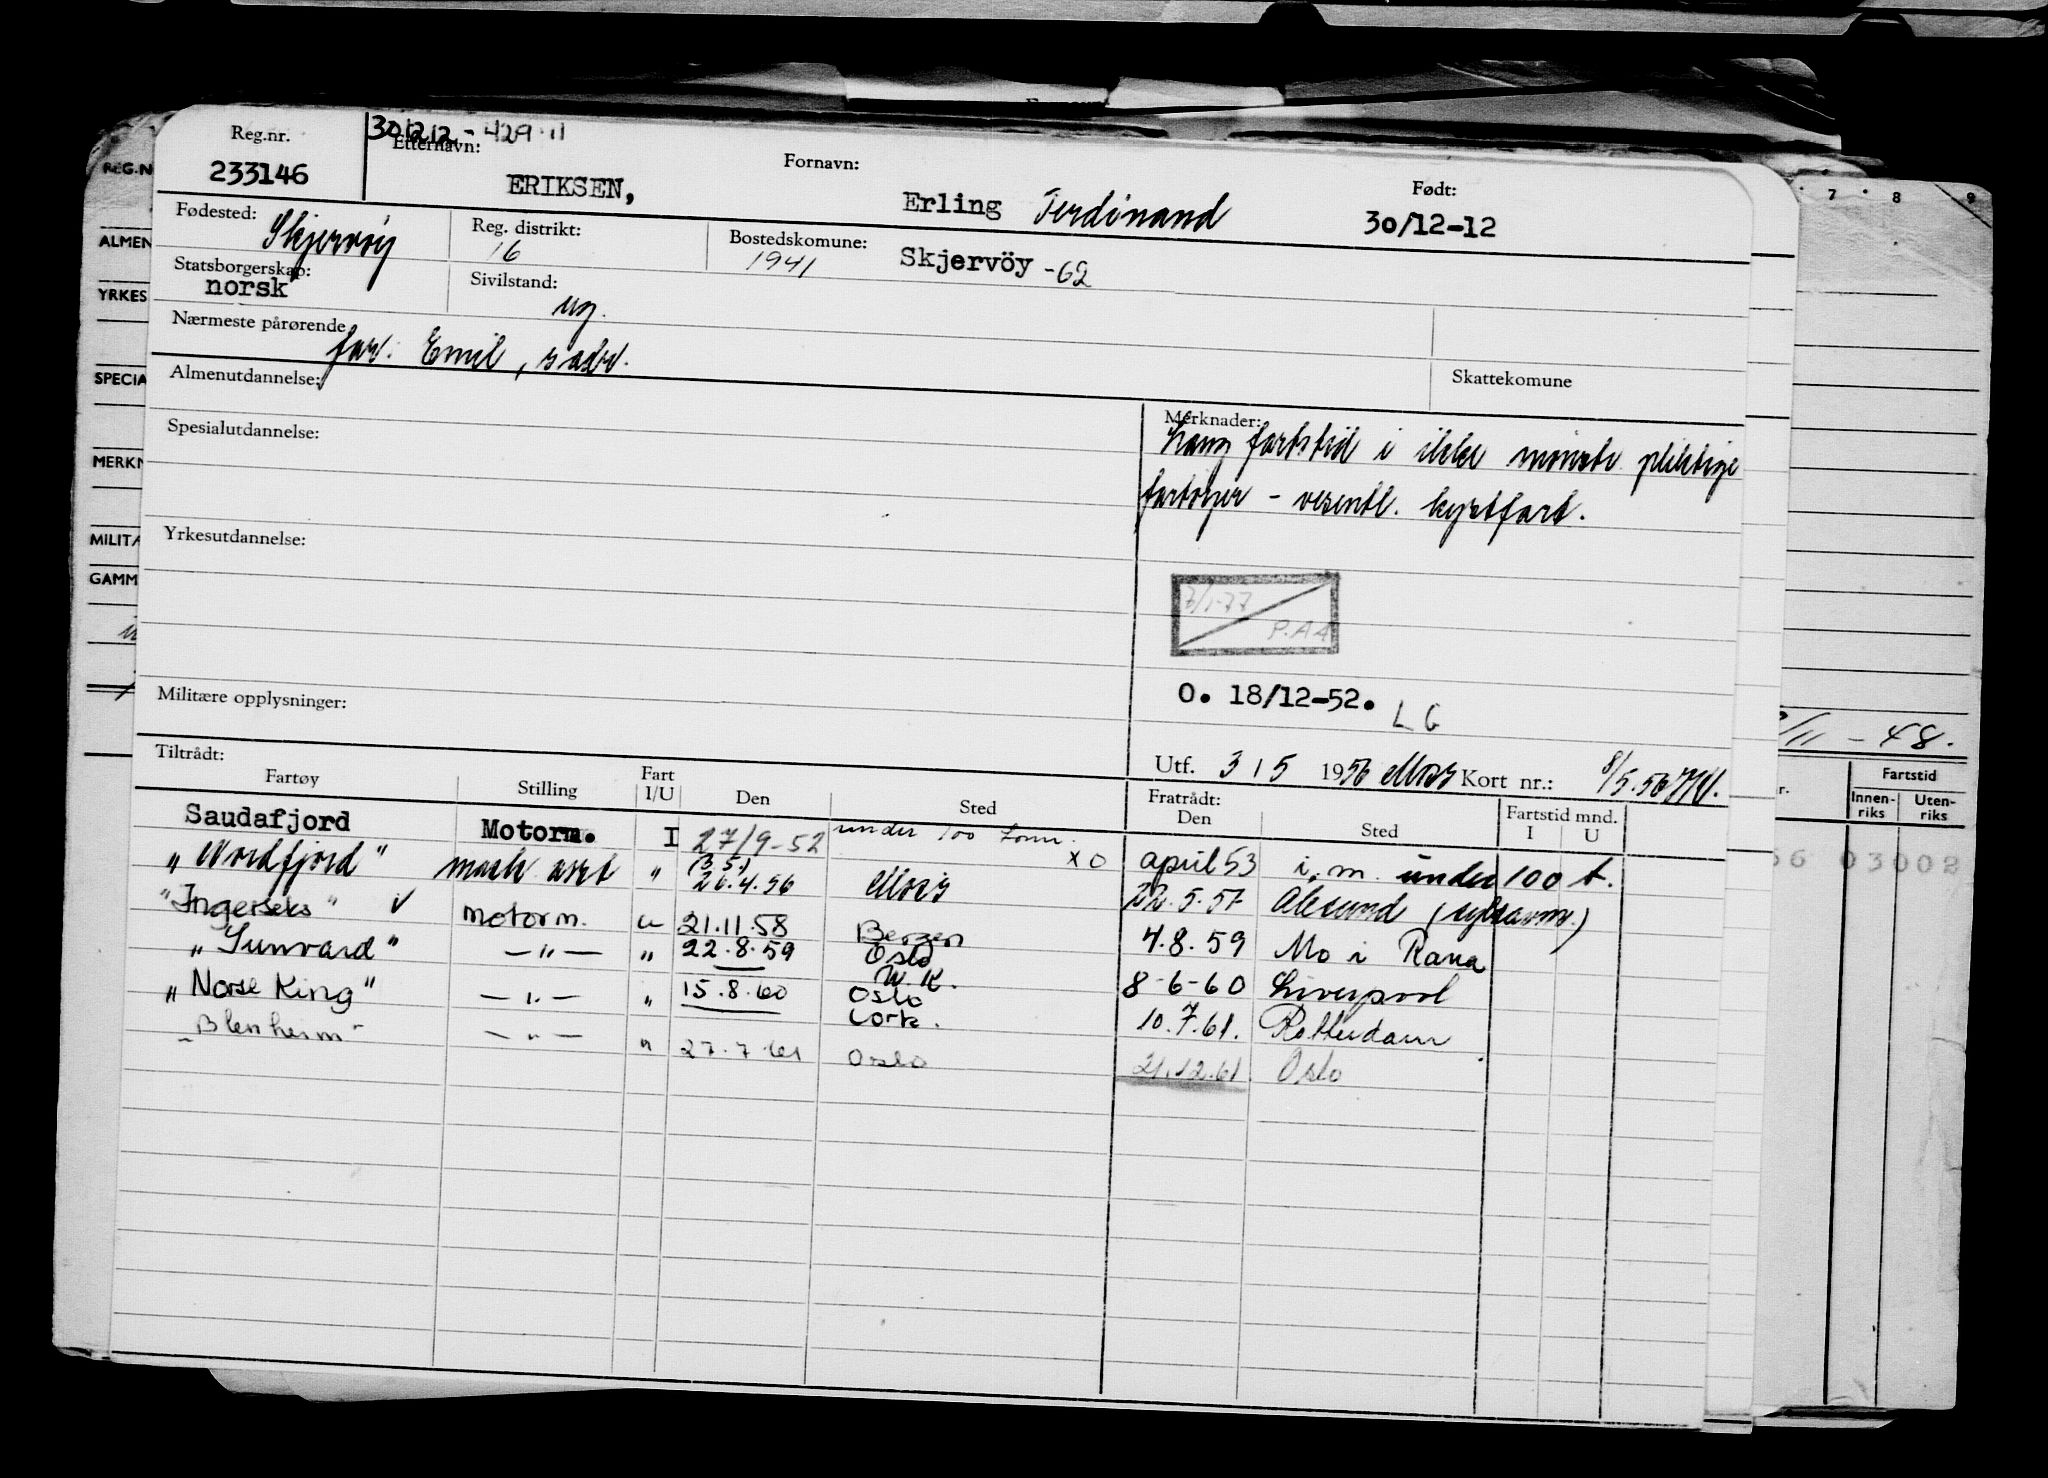 Reg.nr.
301212 - 429 11
Etternavn:
Fornavn:
Født:
233146
ERIKSEN,
Erling Ferdinand
30/12-12
Fødested: Skjervøy
Reg. distrikt: 16
Bostedskomune: 1941 Skjervöy -62
Statsborgerskap: norsk
Sivilstand: ug.
Nærmeste pårørende far: Emil, sadr.
Almenutdannelse:
Skattekomune
Spesialutdannelse:
Merknader:
Lang fartstid i ikke mönstr. pliktige
fartöyer - vesentl. kystfart.
Yrkesutdannelse:
3/1-77
P.AA
Militære opplysninger:
O. 18/12-52. L G
Utf. 3 / 5 1956 Moss Kort nr.: 8/5.56
Tiltrådt:
Fartøy Stilling Fart I/U Den Sted
Fratrådt: Den Sted Fartstid mnd. I U
Saudafjord Motorm. I 27/9-52 under 100 tonn. XO april 53 i. m. under 100 t.
"Nordfjord" mask. " (3.5.) 26.4.56 Moss 22.5.57 Ålesund
"Ingerseks" √ Motorm. u 21.11.58 Bergen 4.8.59 Mo i Rana
"Sunvard" — " — " 22.8.59 Oslo U.K. 8-6-60 Liverpool
"Norse King" — " — " 15.8.60 Oslo Cork. 10.7.61. Rotterdam
"Blenheim" — " — " 27.7.61 Oslo 21.12.61. Oslo
REG.N
ALMEN
YRKES
SPECIA
MERKN
MILITÆ
GAMM
7 8 9
/11 - 48.
Fartstid
Innen-
riks
Uten-
riks
56 03002